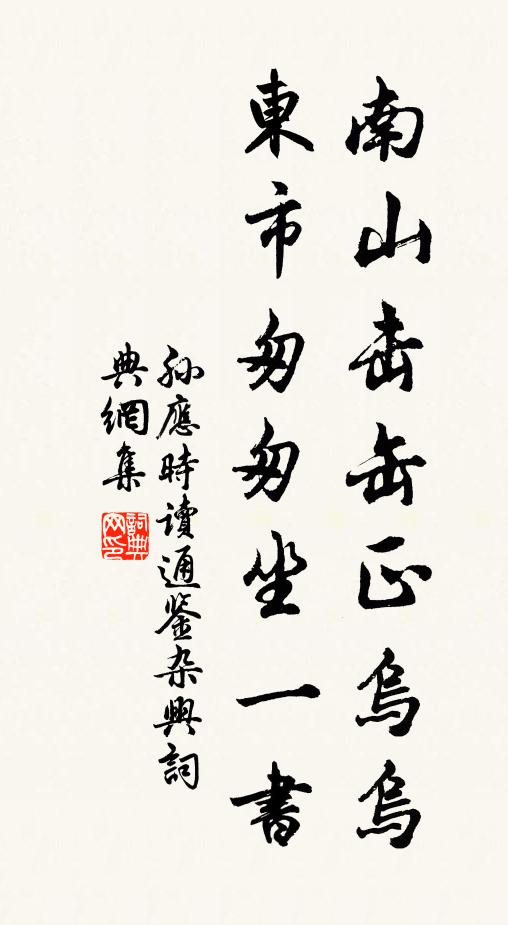 南山击缶正烏烏
東市匆匆坐一書
孙應時讀通鉴杂興詞
典網集
詞典
网印